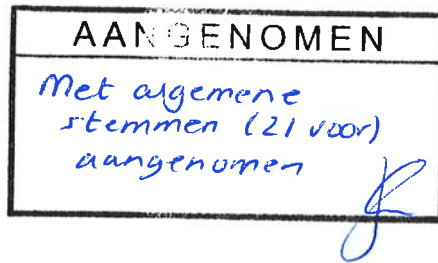 AANGENOMEN
Met algemene
stemmen (21 voor)
aangenomen